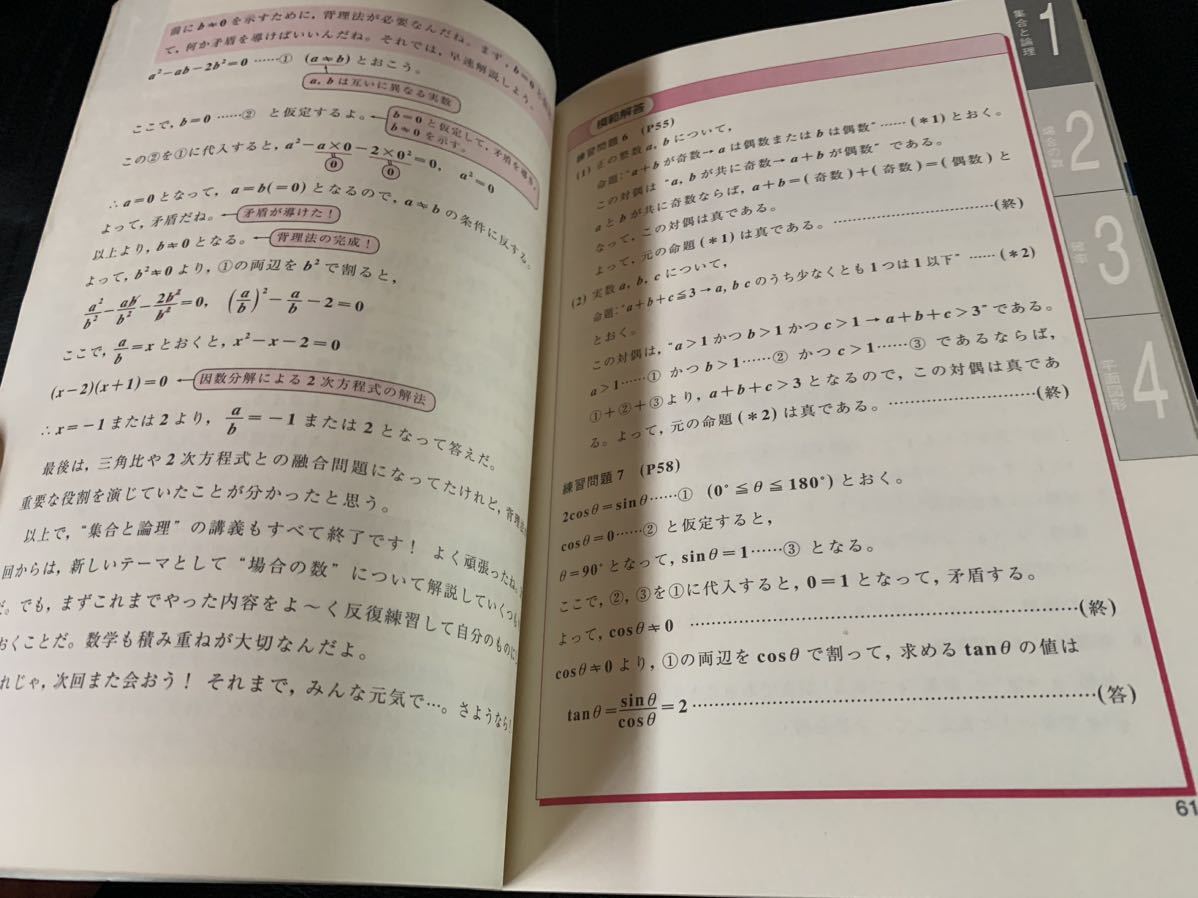 前に b≠0 を示すために, 背理法が必要なんだね。まず, b=0 と
て, 何か矛盾を導けばいいんだね。それでは, 早速解説しよう。
a²−ab−2b²=0 ……① (a≠b) とおこう。
a, b は互いに異なる実数
ここで, b=0 ……② と仮定するよ。
b=0 と仮定して, 矛盾を導き,
b≠0 を示す。
この②を①に代入すると, a²−a×0−2×0²=0, a²=0
0
0
∴a=0 となって, a=b(=0) となるので, a≠b の条件に反する。
よって, 矛盾だね。
矛盾が導けた！
以上より, b≠0 となる。
背理法の完成！
よって, b²≠0 より, ①の両辺を b² で割ると,
a²/b²−ab/b²−2b²/b²=0, (a/b)²−a/b−2=0
ここで, a/b=x とおくと, x²−x−2=0
(x−2)(x+1)=0
因数分解による 2 次方程式の解法
∴x=−1 または 2 より, a/b=−1 または 2 となって答えだ。
最後は, 三角比や 2 次方程式との融合問題になってたけれど, 背理
重要な役割を演じていたことが分かったと思う。
以上で, “集合と論理” の講義もすべて終了です！ よく頑張ったね。
回からは, 新しいテーマとして “場合の数” について解説していくつも
だ。でも, まずこれまでやった内容をよ〜く反復練習して自分のものに
おくことだ。数学も積み重ねが大切なんだよ。
れじゃ, 次回また会おう！ それまで, みんな元気で…。さようなら！
模範解答
練習問題 6 (P55)
(1) 正の整数 a, b について,
命題:“a+b が奇数→a は偶数または b は偶数” ……(＊1) とおく。
この対偶は “a, b が共に奇数→a+b が偶数” である。
a と b が共に奇数ならば, a+b=(奇数)+(奇数)=(偶数) と
なって, この対偶は真である。
よって, 元の命題 (＊1) は真である。……………………(終)
(2) 実数 a, b, c について,
命題:“a+b+c≦3→a, b c のうち少なくとも 1 つは 1 以下” ……(＊2)
とおく。
この対偶は, “a>1 かつ b>1 かつ c>1→a+b+c>3” である。
a>1……① かつ b>1……② かつ c>1……③ であるならば,
①+②+③より, a+b+c>3 となるので, この対偶は真であ
る。よって, 元の命題 (＊2) は真である。……………………(終)
練習問題 7 (P58)
2cosθ=sinθ……① (0°≦θ≦180°) とおく。
cosθ=0……② と仮定すると,
θ=90° となって, sinθ=1……③ となる。
ここで, ②, ③を①に代入すると, 0=1 となって, 矛盾する。
よって, cosθ≠0 ……………………………………………(終)
cosθ≠0 より, ①の両辺を cosθ で割って, 求める tanθ の値は
tanθ=sinθ/cosθ=2……………………………………………(答)
61
1
集合と論理
2
場合の数
3
確率
4
平面図形